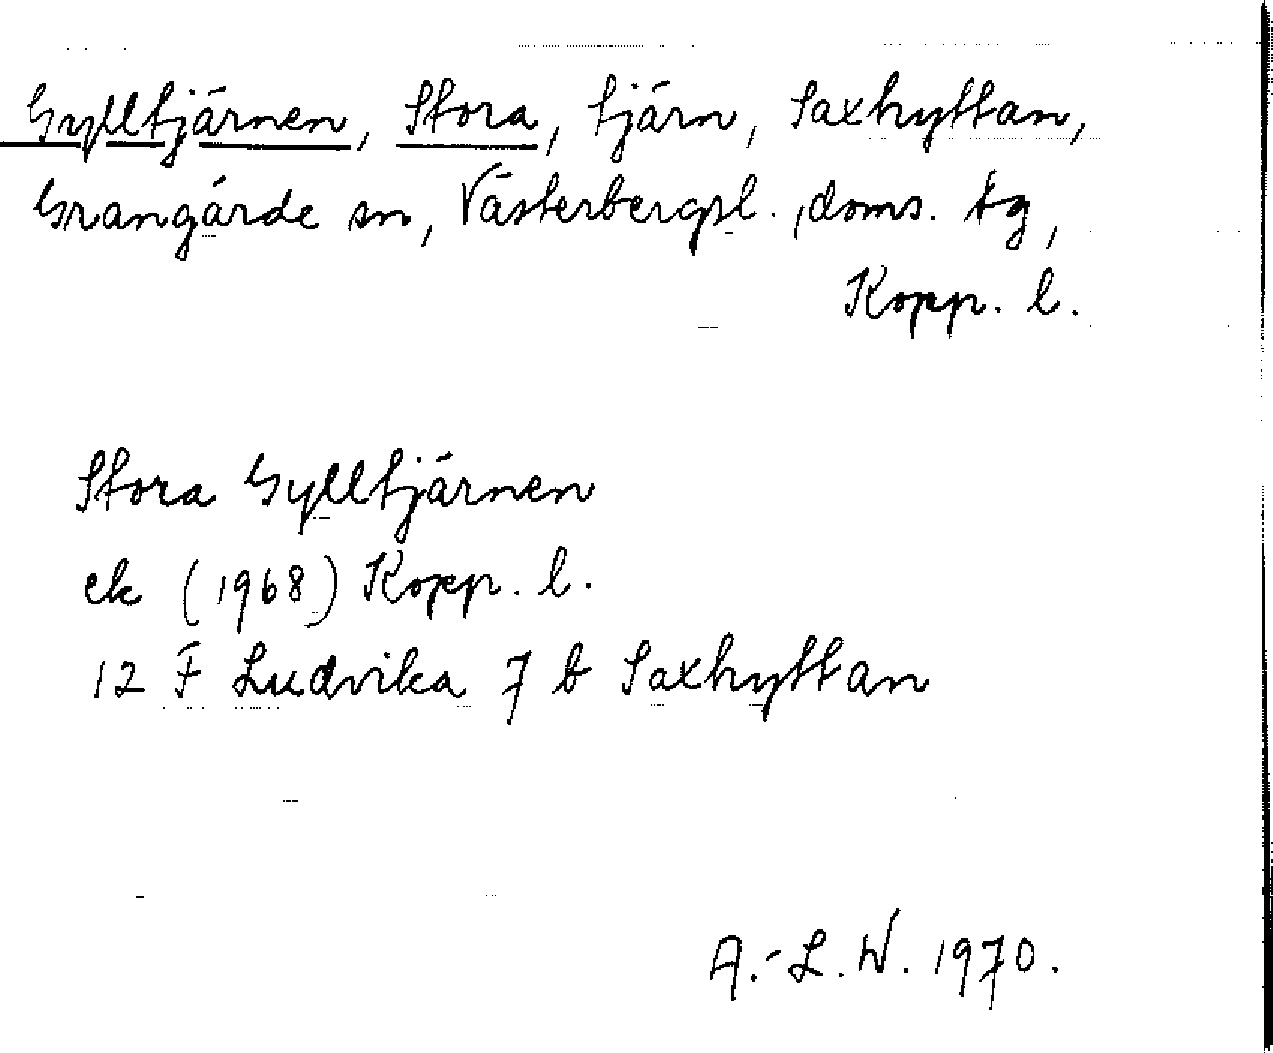 Gylltjärnen, Stora, tjärn, Saxhyttan,
Grangärde sn, Västerbergsl., doms. tg,
Kopp. l.
Stora Gylltjärnen
ek (1968) Kopp. l.
12 F Ludvika 7 b Saxhyttan
A.-L. W. 1970.